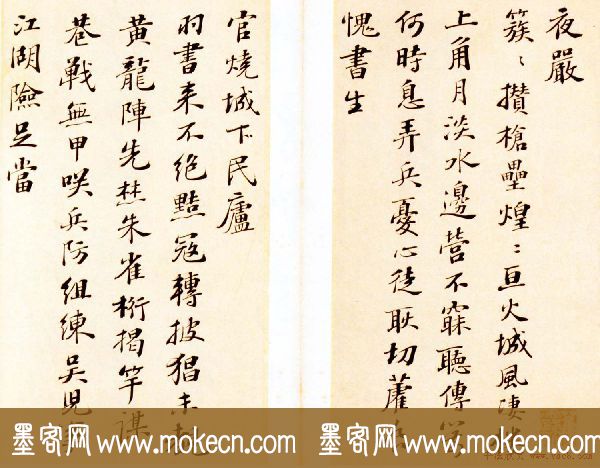 夜嚴
簇〻攢槍壘煌〻亘火城風淒
上角月淡水邊營不寐聽傳
何時息弄兵憂心徒耿切藿
愧書生
官燒城下民廬
羽書来不絕黠寇轉披猖未
黃龍陣先焚朱雀桁揭竿謀
巷戰無甲咲兵防組練吳兒
江湖險足當
墨客网 www.mokecn.com 墨客网 www.mokecn.com